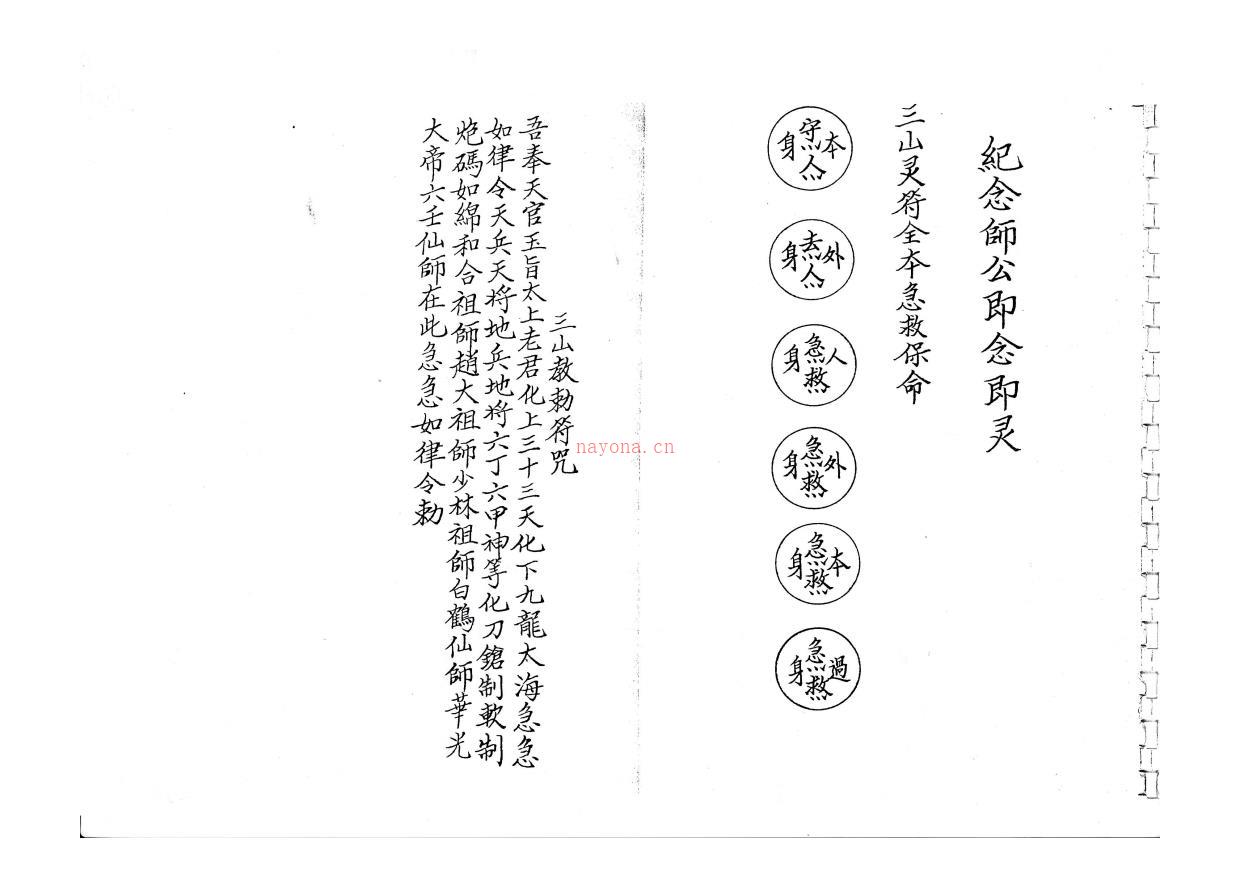 紀念師公即念即灵
三山灵符全本急救保命
本守人身
外去人身
人急救身
外急救身
本急救身
過急救身
三山教勅符咒
吾奉天官玉旨太上老君化上三十三天化下九龍太海急急
如律令天兵天将地兵地将六丁六甲神等化刀鎗制軟制
炮碼如綿和合祖師趙大祖師少林祖師白鶴仙師華光
大帝六壬仙師在此急急如律令勅
nayona.cn